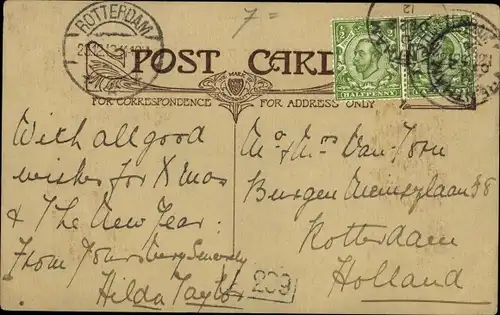 7=
ROTTERDAM
POST CARD
HALFPENNY
MARK
FOR CORRESPONDENCE FOR ADDRESS ONLY
With all good
wishes for Xmas
& The New Year.
From Yours Very Sincerely
Hilda Taylor
Mr & Mrs Van Toorn
Burgen
Rotterdam
Holland
209